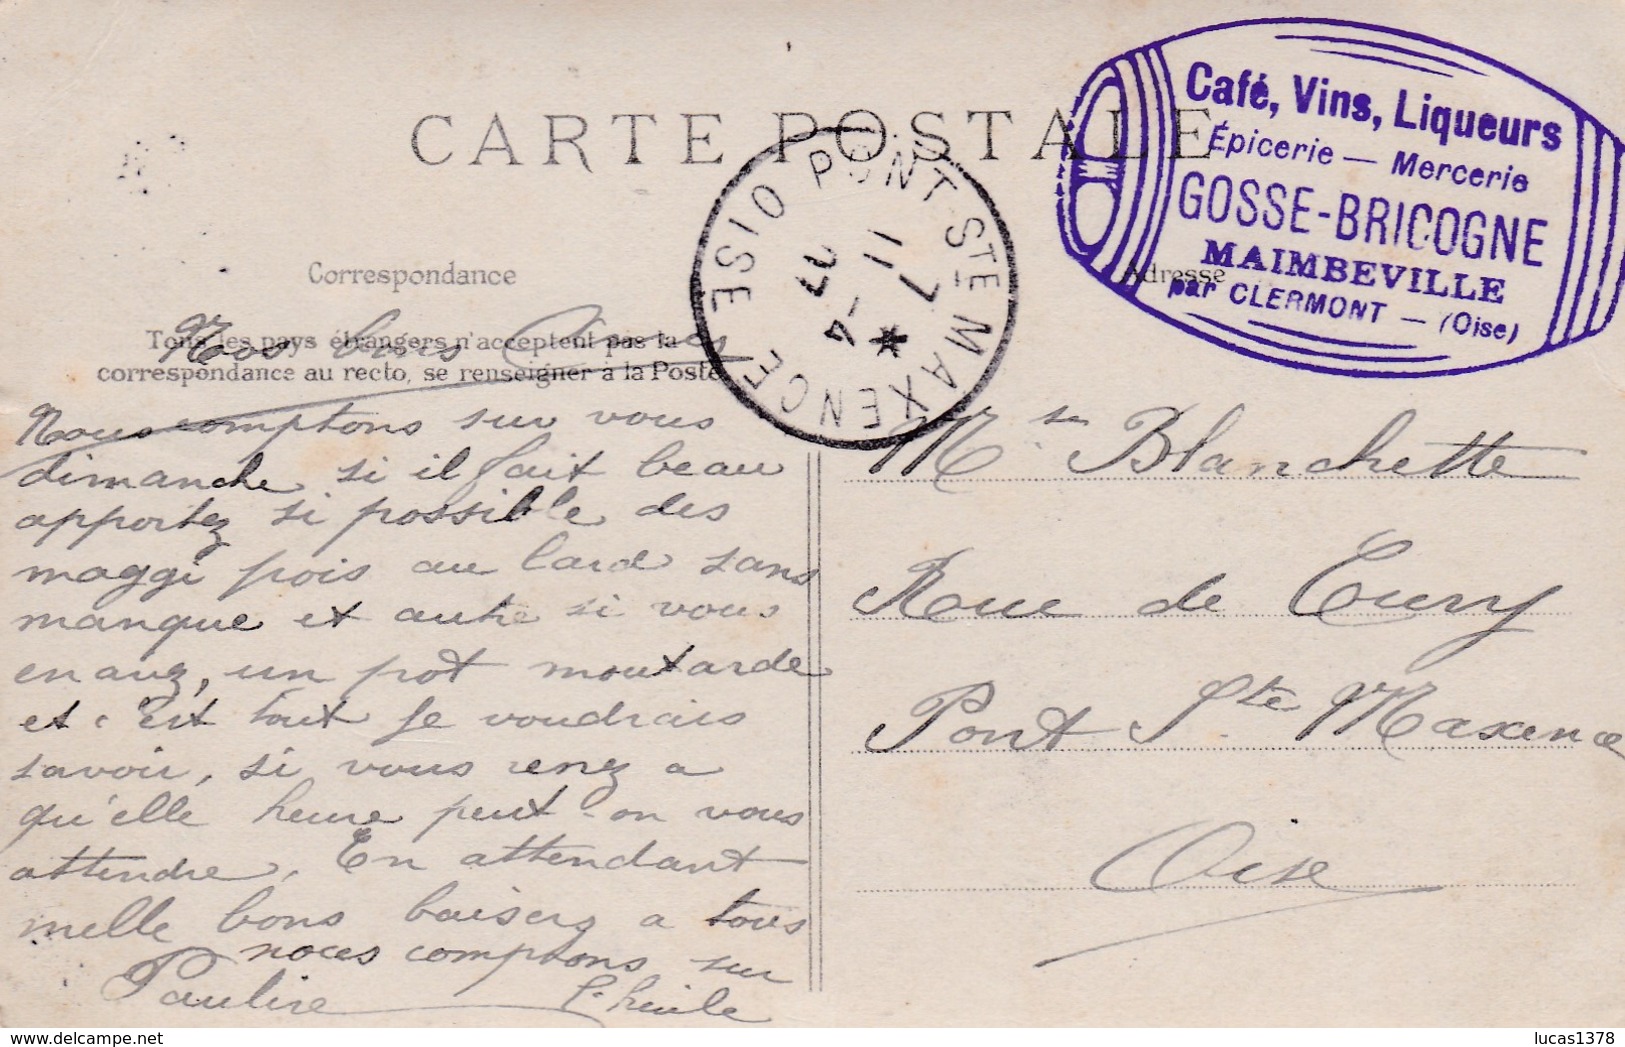 CARTE POSTALE
Café, Vins, Liqueurs
Épicerie — Mercerie
GOSSE-BRICOGNE
MAIMBEVILLE
par CLERMONT — (Oise)
PONT STE MAXENCE OISE
11 7 - 4 07
Correspondance
Adresse
Tous les pays étrangers n'acceptent pas la
correspondance au recto, se renseigner à la Poste
Nos bons Aimés
Nous comptons sur vous
dimanche si il fait beau
apportez si possible des
maggi pois au lard sans
manque et autre si vous
en auez, un pot moutarde
et c'est tout Je voudrais
savoir, si vous venez a
qu'elle heure peut-on vous
attendre. En attendant
mille bons baisers a tous
noces comptons sur
Pauline l'huile
Mr Blanchette
Rue de Cuvry
Pont Ste Maxence
Oise
lucas1378